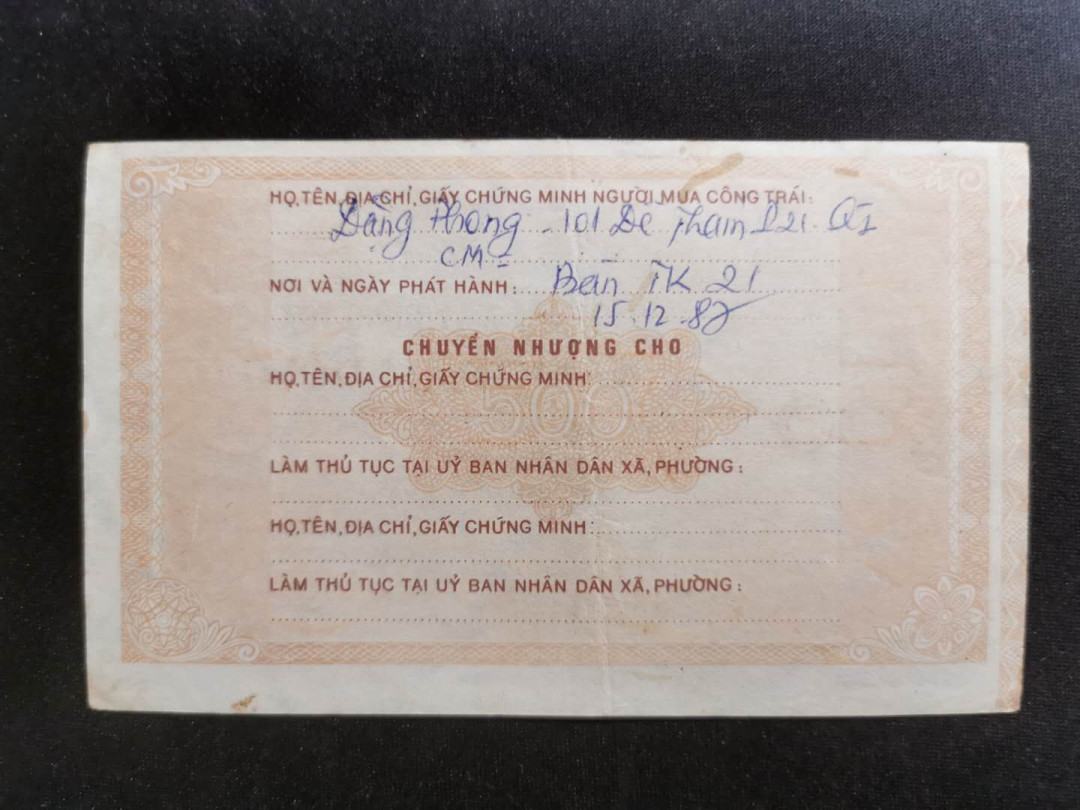 HỌ, TÊN, ĐỊA CHỈ, GIẤY CHỨNG MINH NGƯỜI MUA CÔNG TRÁI:
Đặng Phong - 101 Đề Thám P21. Q1
CM =
NƠI VÀ NGÀY PHÁT HÀNH: Bàn TK 21
15.12.87
CHUYỂN NHƯỢNG CHO
HỌ, TÊN, ĐỊA CHỈ, GIẤY CHỨNG MINH:
500
LÀM THỦ TỤC TẠI UỶ BAN NHÂN DÂN XÃ, PHƯỜNG:
HỌ, TÊN, ĐỊA CHỈ, GIẤY CHỨNG MINH:
LÀM THỦ TỤC TẠI UỶ BAN NHÂN DÂN XÃ, PHƯỜNG: